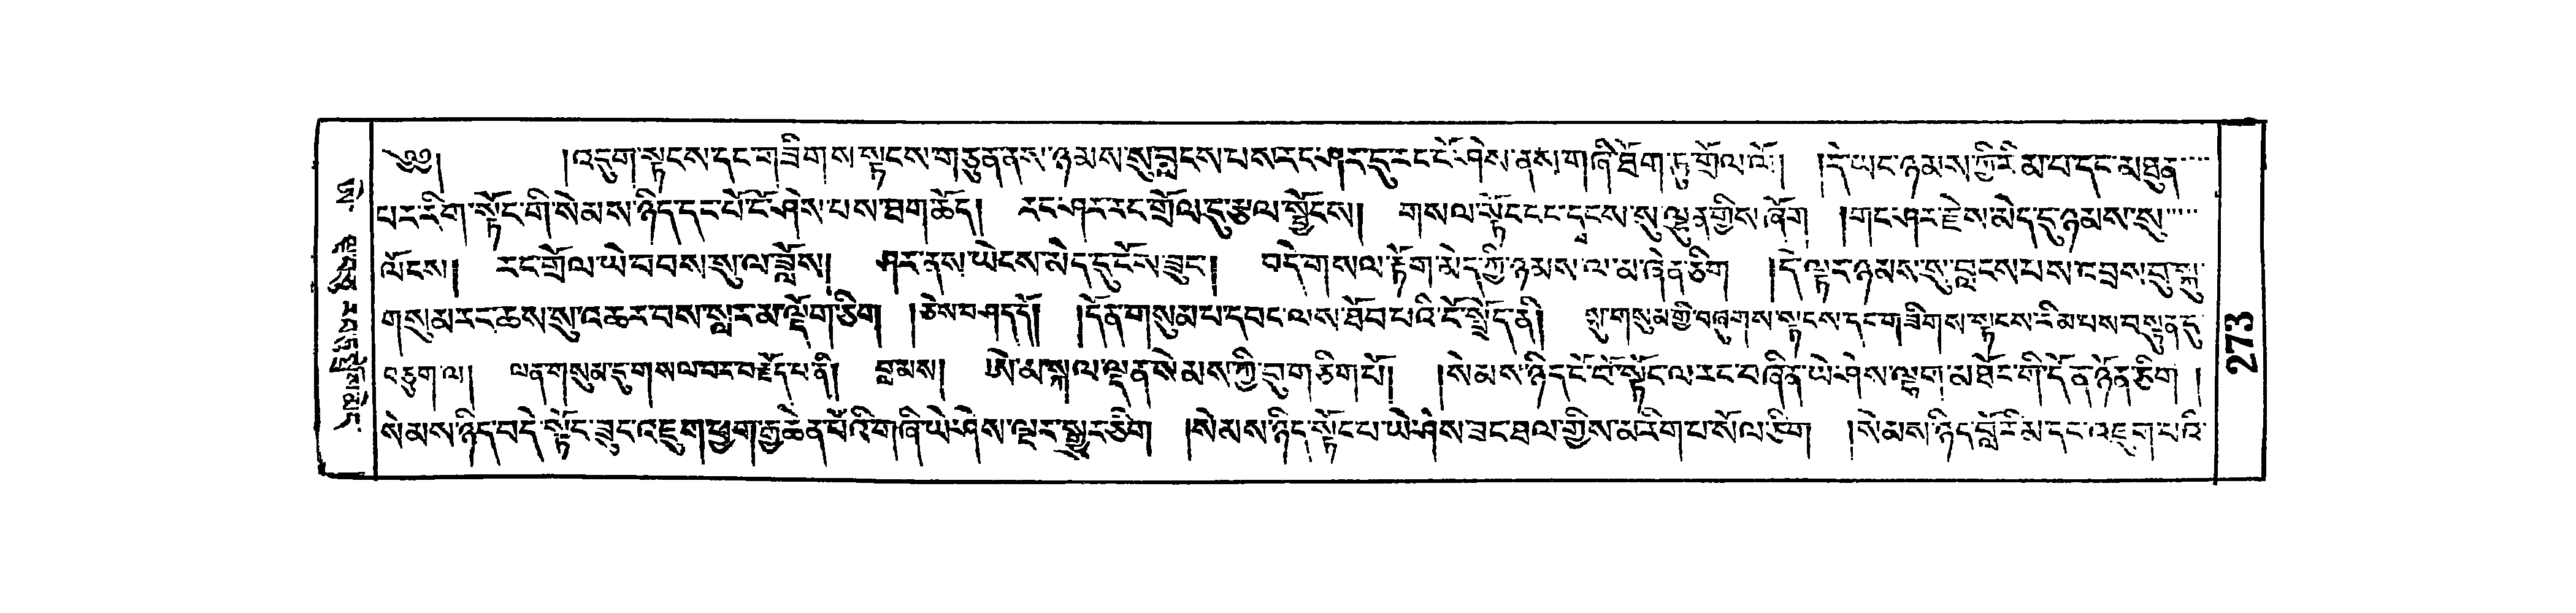 ༄༅། །འདུག་སྟངས་དང་གཟིགས་སྟངས་གཙུན་ནས་ཉམས་སུ་བླངས་པས་རང་ཤར་དུ་རང་ངོ་ཤེས་ནས་གཞི་ཐོག་ཏུ་གྲོལ་ལོ། །དེ་ཡང་ཉམས་ཀྱི་རིམ་པ་དང་མཐུན་
པར་རིག་སྟོང་གི་སེམས་ཉིད་དང་པོ་ངོ་ཤེས་པས་ཐག་ཆོད། རང་ཤར་རང་གྲོལ་དུ་རྩལ་སྦྱོངས། གསལ་སྟོང་ངང་དྭངས་སུ་ལྷུན་གྱིས་ཞོག །གང་ཤར་རྗེས་མེད་དུ་ཉམས་སུ་
ལོངས། རང་གྲོལ་ཡེ་བབས་སུ་ལ་བློས། ཤར་ནས་ཡེངས་མེད་དུ་ངོས་ཟུང་། བདེ་གསལ་རྟོག་མེད་ཀྱི་ཉམས་ལ་མ་ཞེན་ཅིག །དེ་ལྟར་ཉམས་སུ་བླངས་པས་འབྲས་བུ་སྐུ་
གསུམ་རང་ཆས་སུ་འཆར་བས་སླར་མ་ལྡོག་ཅིག །ཅེས་བཤད་དོ། །དོན་གསུམ་པ་དབང་ལས་ཐོབ་པའི་ངོ་སྤྲོད་ནི། སྐུ་གསུམ་གྱི་བཞུགས་སྟངས་དང་གཟིགས་སྟངས་རིམ་པས་བསྟན་དུ་
བཅུག་ལ། ལན་གསུམ་དུ་གསལ་བར་བརྗོད་པ་ནི། བླ་མས། ཨེ་མ་སྐལ་ལྡན་སེམས་ཀྱི་བུ་གཅིག་པོ། །སེམས་ཉིད་ངོ་བོ་སྟོང་ལ་རང་བཞིན་ཡེ་ཤེས་ལྷག་མཐོང་གི་དོན་ཉོན་ཅིག །
སེམས་ཉིད་བདེ་སྟོང་ཟུང་འཇུག་ཕྱག་རྒྱ་ཆེན་པོའི་གཞི་ཡེ་ཤེས་ལྔར་སྒྱུར་ཅིག །སེམས་ཉིད་སྟོང་པ་ཡེ་ཤེས་ཟང་ཐལ་གྱིས་མ་རིག་པ་སོལ་ཅིག །སེམས་ཉིད་བློ་རིམ་དང་འཇུག་པའི་
573